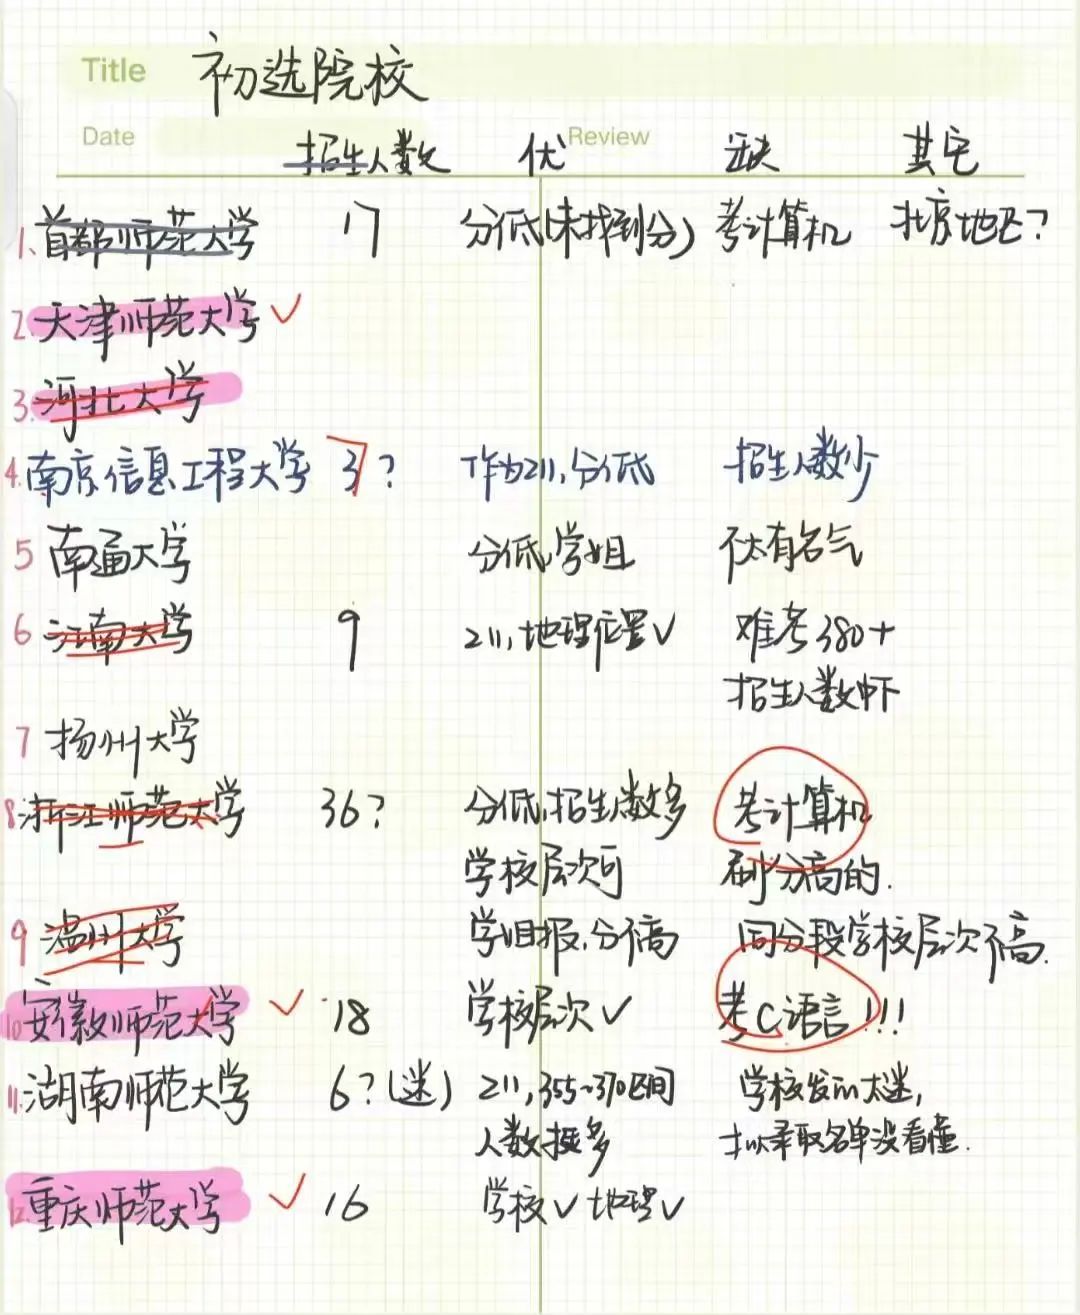 Title 初选院校
Date 招生人数 优 Review 缺 其它
1. 首都师范大学 17 分低(未找到分) 考计算机 北京地区?
2. 天津师范大学 ✓
3. 河北大学
4. 南京信息工程大学 3? 作为211,分低 招生人数少
5 南通大学 分低,学姐 不太有名气
6 江南大学 9 211,地理位置✓ 难考380+
招生人数中下
7 扬州大学
8. 浙江师范大学 36? 分低,招生人数多 考计算机
学校层次可 刷分高的.
9 温州大学 学姐报,分高 同分段学校层次不高.
10 安徽师范大学 ✓ 18 学校层次✓ 考C语言!!!
11. 湖南师范大学 6?(迷) 211,355~370区间 学校发的太迷,
人数挺多 拟录取名单没看懂.
12. 重庆师范大学 ✓ 16 学校✓ 地理✓